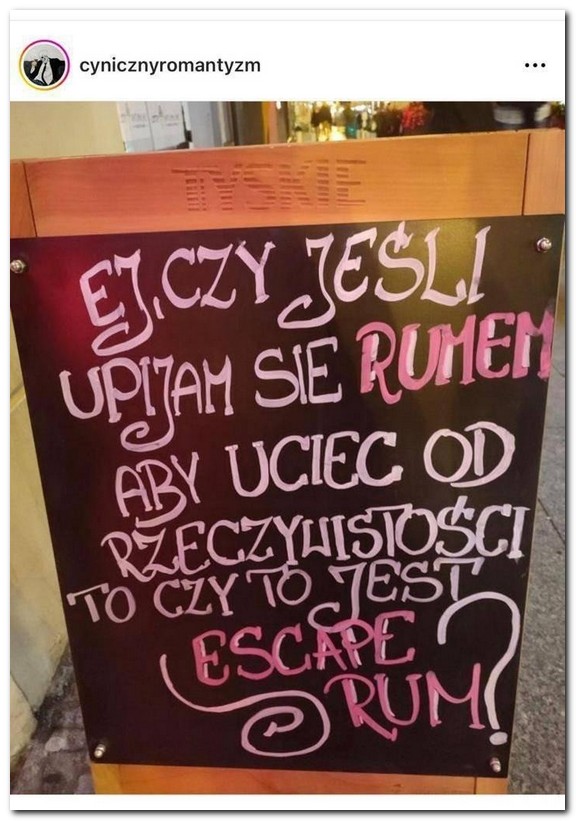 cynicznyromantyzm
TYSKIE
EJ, CZY JEŚLI
UPIJAM SIE RUMEM
ABY UCIEC OD
RZECZYWISTOŚCI
TO CZY TO JEST
ESCAPE
RUM?